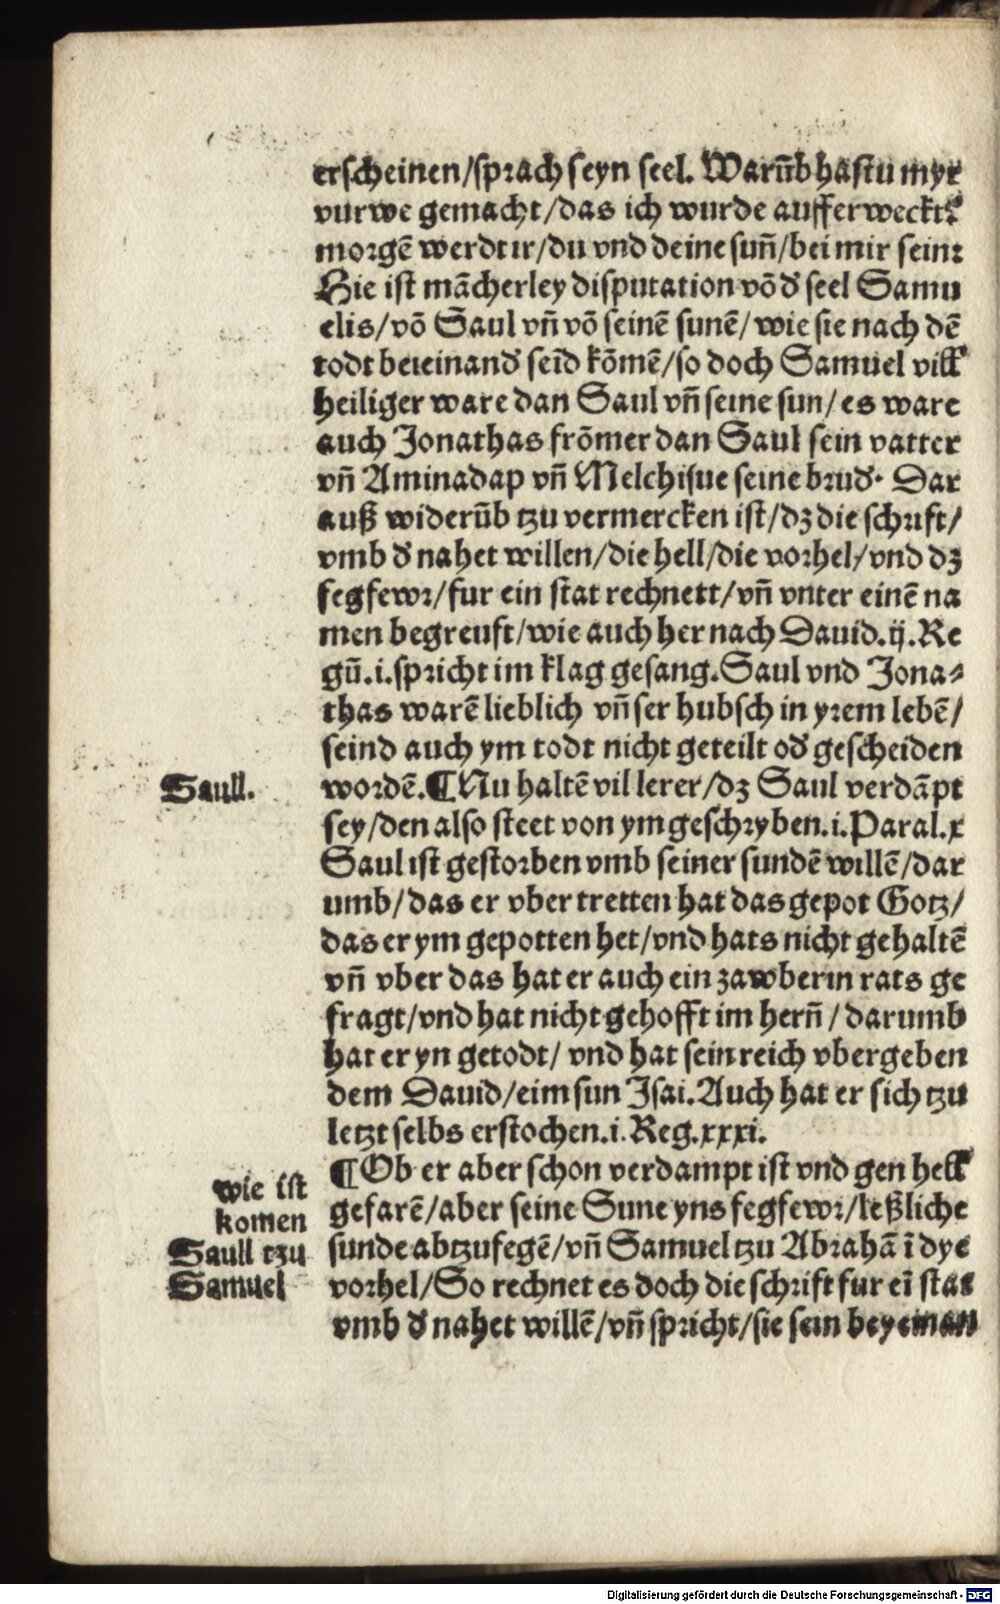 erscheinen/sprach seyn seel. Warũb hastu myr
vurwe gemacht/das ich wurde aufferweckt?
morgẽ werdt ir/du vnd deine sun̄/bei mir sein:
Hie ist mãcherley disputation võ đ seel Samu
elis/võ Saul vn̄ võ seinẽ sunẽ/wie sie nach dẽ
todt beieinanđ seĩd kõmẽ/so doch Samuel vill
heiliger ware dan Saul vn̄ seine sun/es ware
auch Jonathas frõmer dan Saul sein vatter
vn̄ Aminadap vn̄ Melchisue seine bruđ. Dar
auß widerũb tzu vermercken ist/dz die schrift/
vmb đ nahet willen/die hell/die vorhel/vnd dz
fegfewr/fur ein stat rechnett/vn̄ vnter einẽ na
men begreuft/wie auch her nach Dauid.ij.Re
gũ.i.spricht im klag gesang.Saul vnd Jona-
thas warẽ lieblich vn̄ ser hubsch in yrem lebẽ/
seind auch ym todt nicht geteilt ođ gescheiden
Saull.
wordẽ.¶Nu haltẽ vil lerer/dz Saul verdãpt
sey/den also steet von ym geschryben.i.Paral.x
Saul ist gestorben vmb seiner sundẽ willẽ/dar
umb/das er vbertretten hat das gepot Gotz/
das er ym gepotten het/vnd hats nicht gehaltẽ
vn̄ vber das hat er auch ein zawberin rats ge
fragt/vnd hat nicht gehofft im hern̄/darumb
hat er yn getodt/vnd hat sein reich vbergeben
dem Dauid/eim sun Isai.Auch hat er sich tzu
letzt selbs erstochen.i.Reg.xxxi.
¶Ob er aber schon verdampt ist vnd gen hell
wie ist
komen
Saull tzu
Samuel
gefarẽ/aber seine Sune yns fegfewr/leßliche
sunde abtzufegẽ/vn̄ Samuel tzu Abrahã ĩ dye
vorhel/So rechnet es doch die schrift fur eĩ stat
vmb đ nahet willẽ/vn̄ spricht/sie sein beyeinan
Digitalisierung gefördert durch die Deutsche Forschungsgemeinschaft - DFG